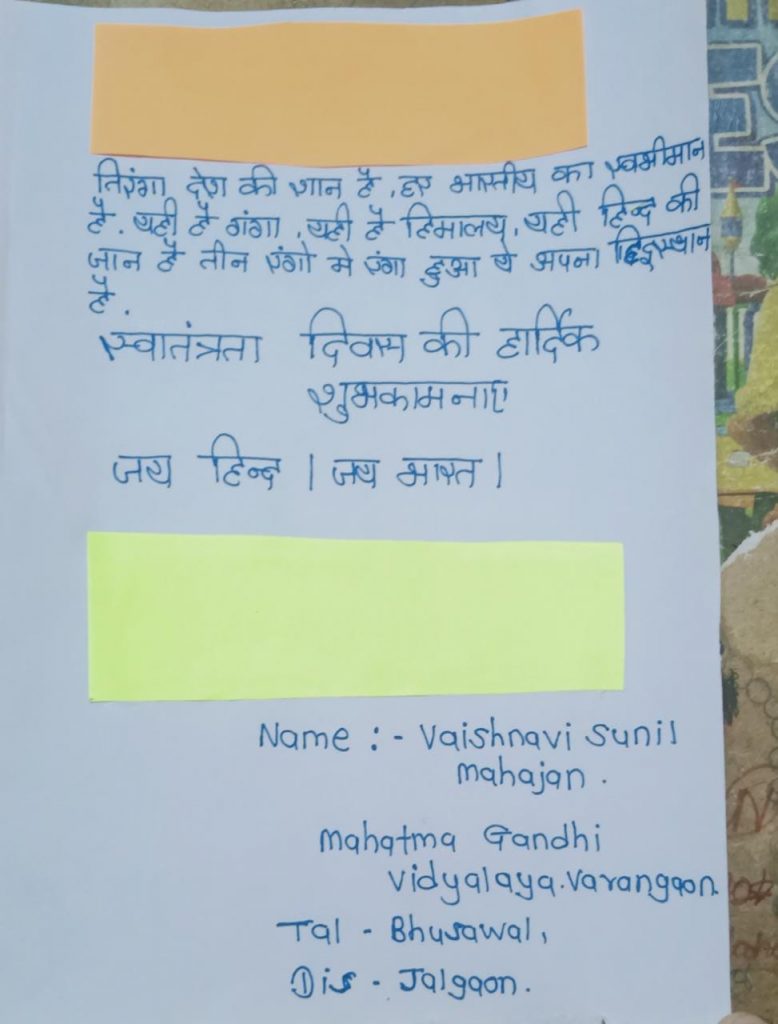 तिरंगा देश की शान है, हर भारतीय का स्वभीमान
है. यही है गंगा, यही है हिमालय, यही हिन्द की
जान है तीन रंगो मे रंगा हुआ ये अपना
है.
स्वातंत्रता दिवस की हार्दिक
शुभकामनाए
जय हिन्द | जय भारत |
Name :- Vaishnavi Sunil
mahajan.
Mahatma Gandhi
Vidyalaya.Varangaon.
Tal - Bhusawal,
Dis - Jalgaon.